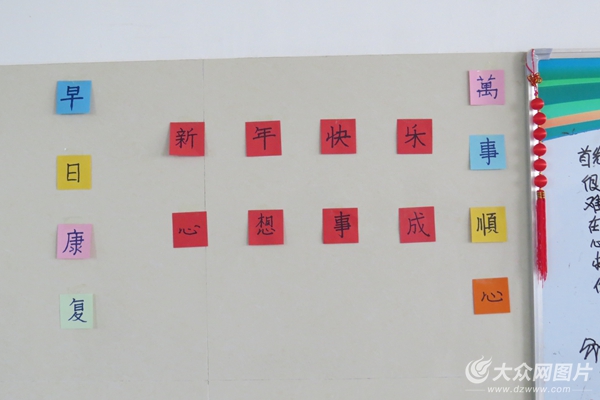 早日康复
新年快乐
心想事成
萬事順心
首
很
难
在
心
大众网图片
www.dzwww.com